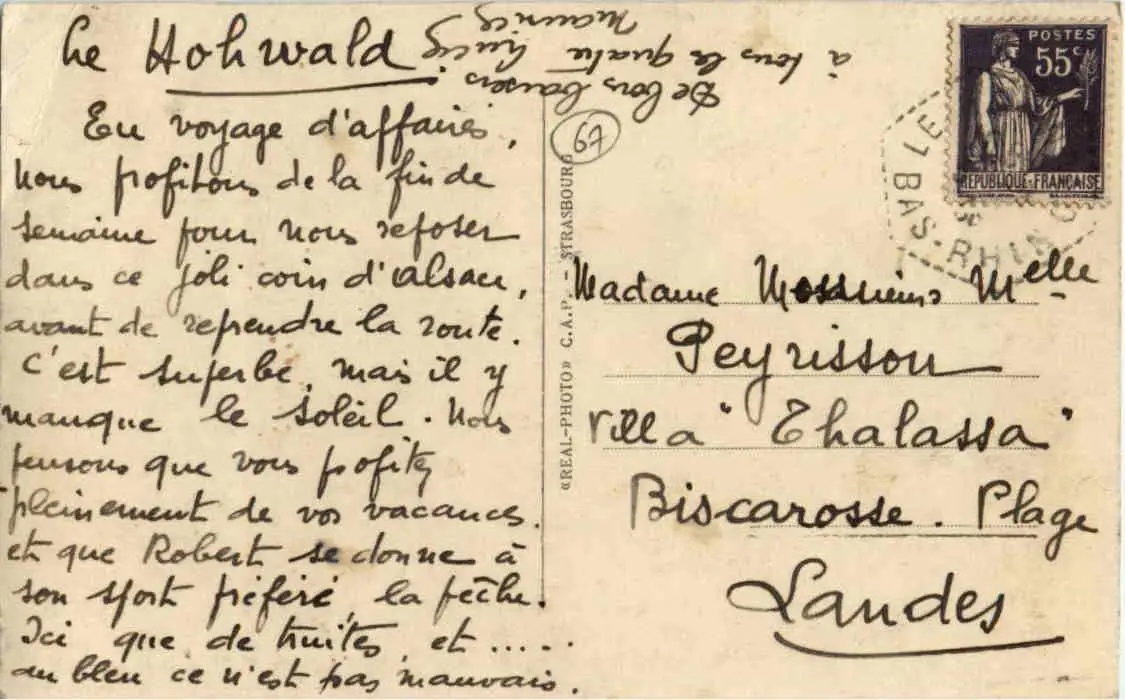 Le Hohwald.
En voyage d'affaires,
nous profitons de la fin de
semaine pour nous reposer
dans ce joli coin d'Alsace,
avant de reprendre la route.
C'est superbe, mais il y
manque le soleil. Nous
pensons que vous profitez
pleinement de vos vacances.
et que Robert se donne à
son sport préféré, la pêche.
Ici que de truites, et .....
au bleu ce n'est pas mauvais.
De bons baisers
à tous les quatre
Maurice
67
«REAL-PHOTO» C.A.P. - STRASBOURG
POSTES
55c
REPUBLIQUE-FRANÇAISE
LE
BAS-RHIN
Madame Messieurs Melle
Peyrisson
Villa "Thalassa"
Biscarosse. Plage
Landes